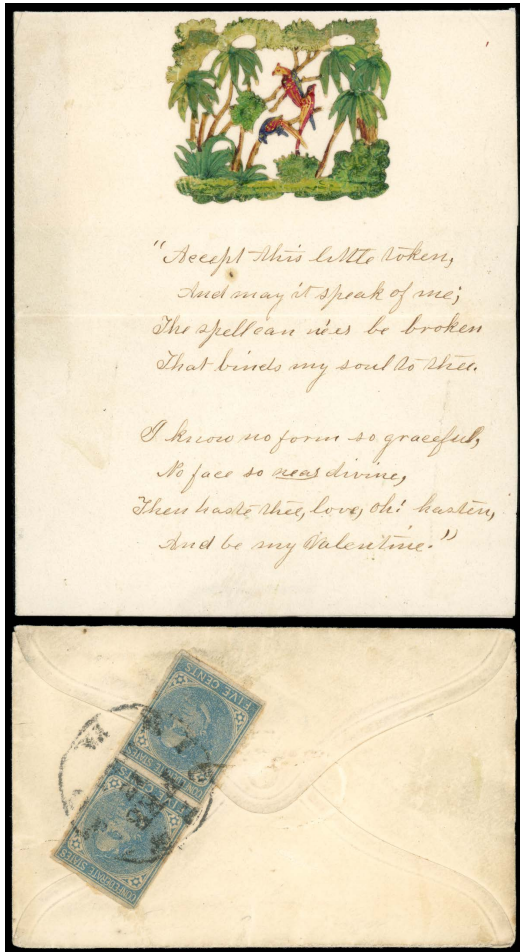 "Accept this little token,
And may it speak of me;
The spell can ne'er be broken
That binds my soul to thee.
I know no form so graceful,
No face so near divine,
Then haste thee, love, oh! hasten,
And be my Valentine."
FIVE CENTS
CONFEDERATE STATES
FIVE CENTS
CONFEDERATE STATES